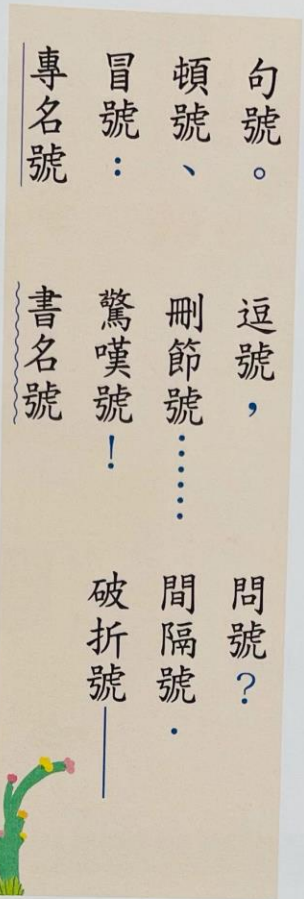 句號。　逗號，　問號？
頓號、　刪節號……　間隔號．
冒號：　驚嘆號！　破折號——
專名號　書名號